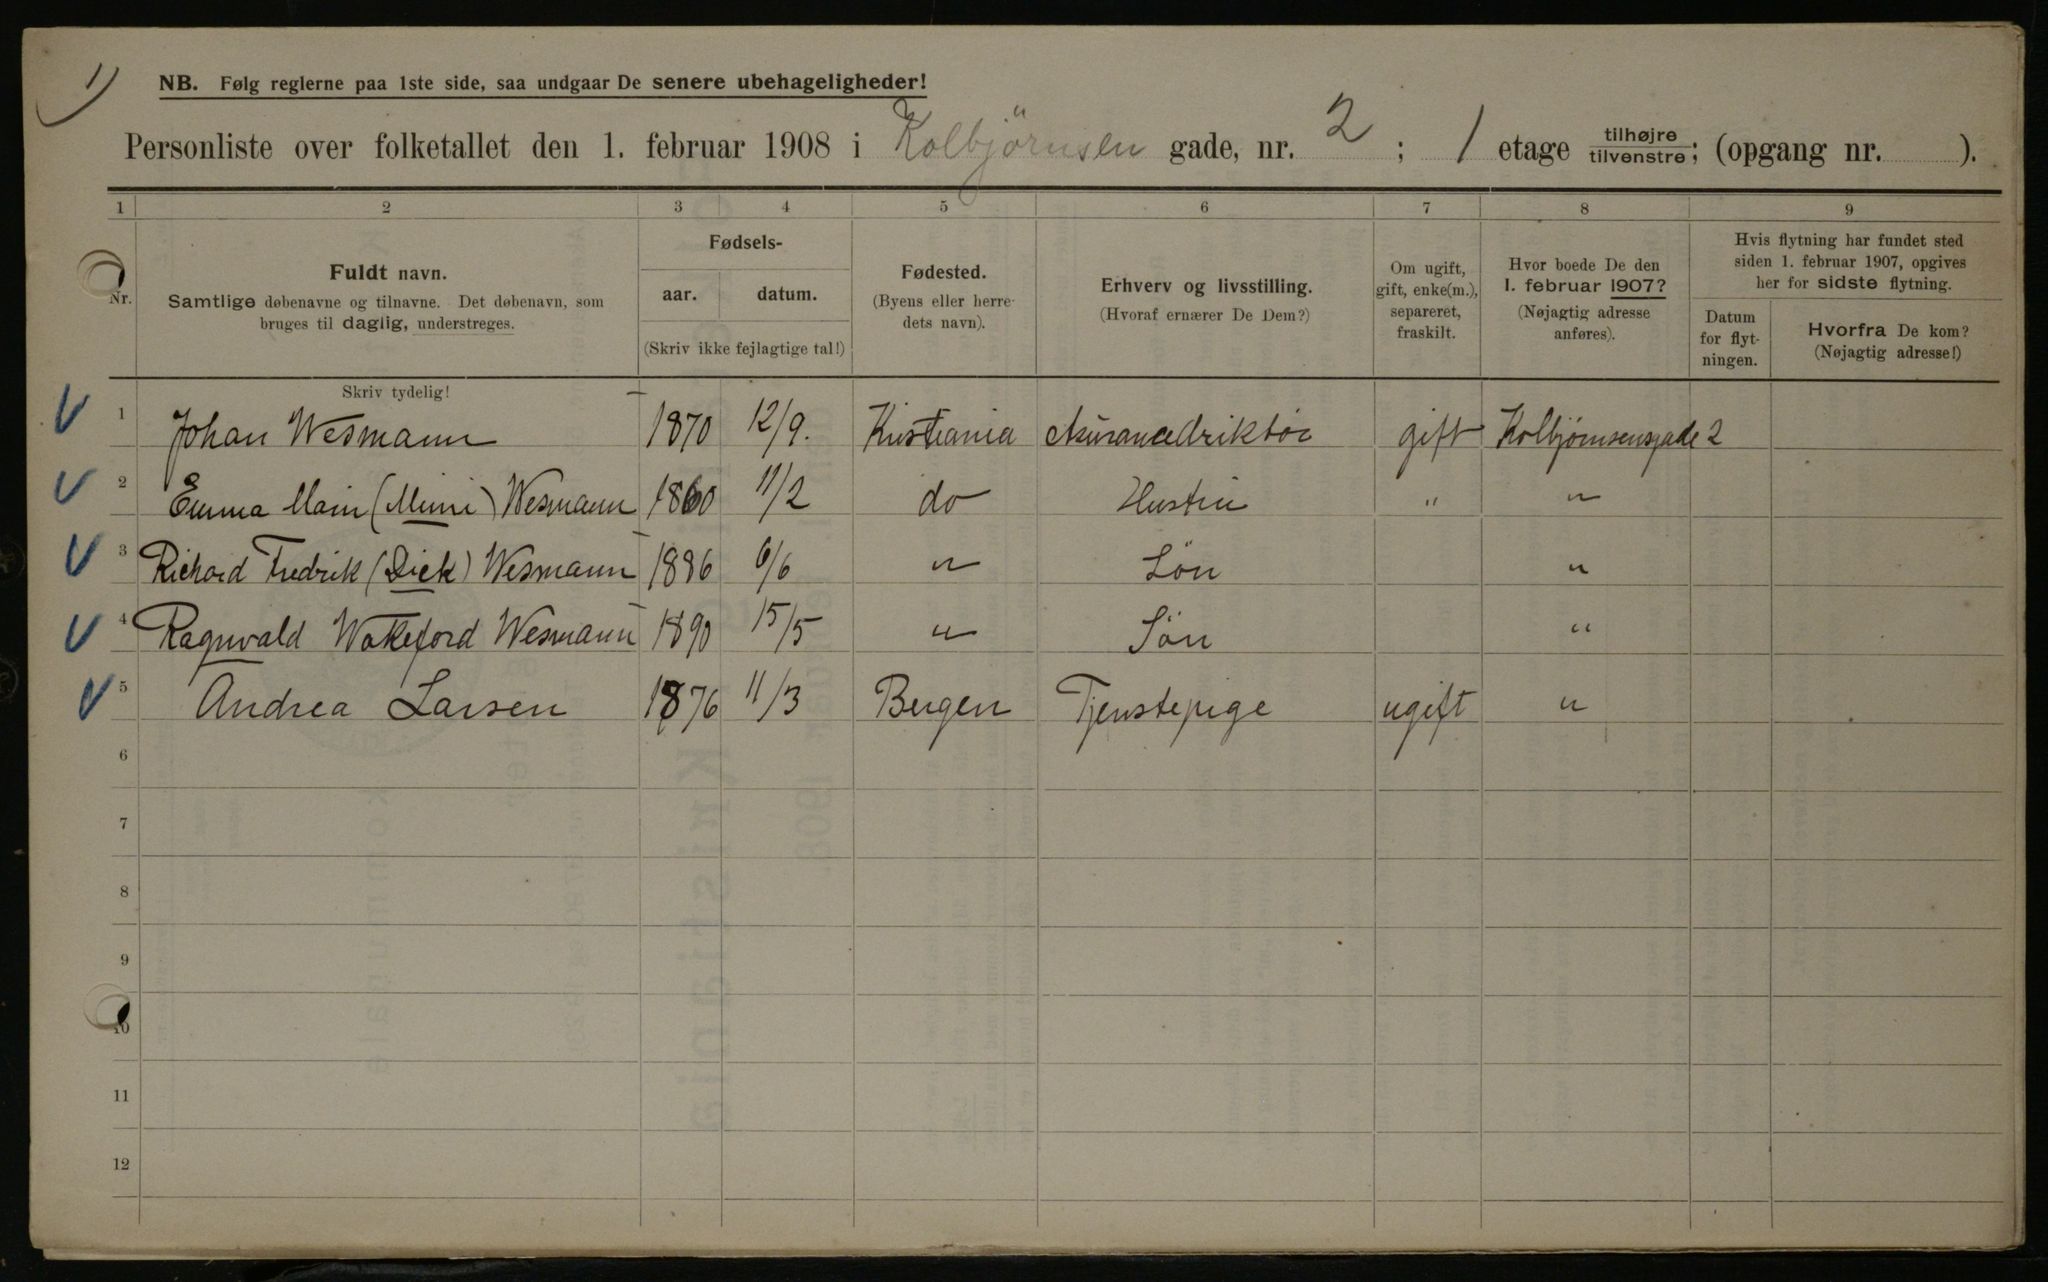 1)
NB. Følg reglerne paa 1ste side, saa undgaar De senere ubehageligheder!
Personliste over folketallet den 1. februar 1908 i Kolbjörnsen gade, nr. 2 ; 1 etage tilhøjre/tilvenstre; (opgang nr. ).
1 2 3 4 5 6 7 8 9
Nr.
Fuldt navn.
Samtlige døbenavne og tilnavne. Det døbenavn, som
bruges til daglig, understreges.
Fødsels-
aar. datum.
(Skriv ikke fejlagtige tal!)
Fødested.
(Byens eller herre-
dets navn).
Erhverv og livsstilling.
(Hvoraf ernærer De Dem?)
Om ugift,
gift, enke(m.),
separeret,
fraskilt.
Hvor boede De den
1. februar 1907?
(Nøjagtig adresse
anføres).
Hvis flytning har fundet sted
siden 1. februar 1907, opgives
her for sidste flytning.
Datum
for flyt-
ningen.
Hvorfra De kom?
(Nøjagtig adresse!)
Skriv tydelig!
1 Johan Wesmann 1870 12/9. Kristiania Assurancedriktör gift Kolbjørnsensgade 2
2 Emma (Mimi) Wesmann 1860 11/2 do Hustru " "
3 Richard Fredrik (Dick) Wesmann 1886 6/6 " Sön "
4 Ragnvald Wakeford Wesmann 1890 15/5 " Sön "
5 Andrea Larsen 1876 11/3 Bergen Tjenstepige ugift "
6
7
8
9
10
11
12